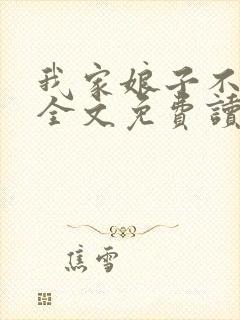 我家娘子不
全文免費讀
焦雪